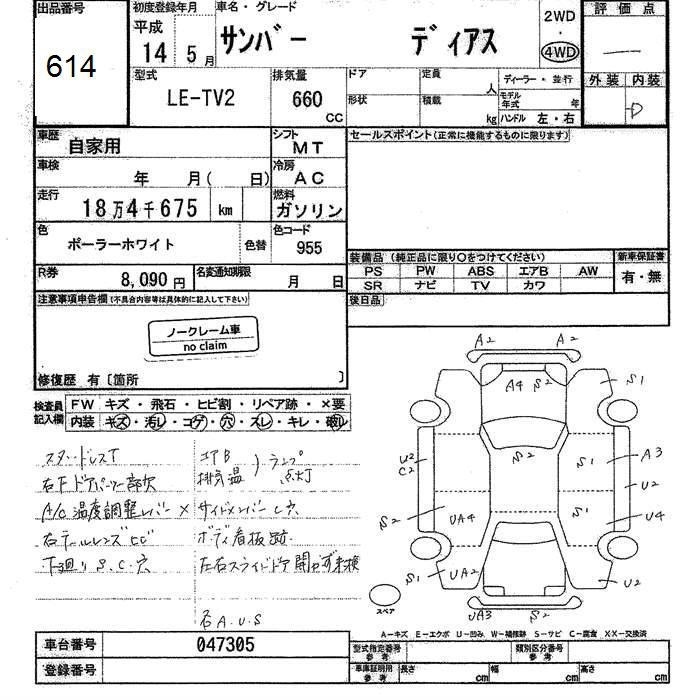 出品番号
614
初度登録年月
平成
14 5月
車名・グレード
サンバー ディアス
2WD
・
4WD
評価点
外装 内装
D
型式
LE-TV2
排気量
660
CC
ドア
形状
定員
人
積載
kg
ディーラー・並行
モデル年式 年
ハンドル 左・右
車歴
自家用
シフト
MT
車検
年 月( 日)
冷房
AC
走行
18万4千675 km
燃料
ガソリン
色
ポーラーホワイト
色替
色コード
955
R券
8,090円
名変通知期限
月 日
セールスポイント(正常に機能するものに限ります)
装備品(純正品に限り○をつけてください)
PS PW ABS エアB AW
SR ナビ TV カワ
新車保証書
有・無
後日品
注意事項申告欄(不具合内容等は具体的に記入して下さい)
ノークレーム車
no claim
修復歴 有〔箇所 〕
検査員記入欄
FW キズ・飛石・ヒビ割・リペア跡・×要
内装 キズ・汚レ・コゲ・穴・スレ・キレ・破レ
スタッドレスT
右Fドアバイザー部欠
A/C温度調整レバー×
右テールレンズヒビ
下廻りS.C.穴
エアB
排気温
ランプ点灯
サイドメンバーL穴
ボディ看板跡
左右スライドドア開かず未検
右A.U.S
A2 A2
A4 S2
S1
S2
U2
C2
S1
A3
U2
S2
UA4
S1
U4
S1
UA2
U2
UA3 S2
スペア
A-キズ E-エクボ U-凹み W-補修跡 S-サビ C-腐食 XX-交換済
車台番号
047305
登録番号
型式指定番号
参考
類別区分番号
参考
車庫証明用
参考
長さ cm
幅 cm
高さ cm